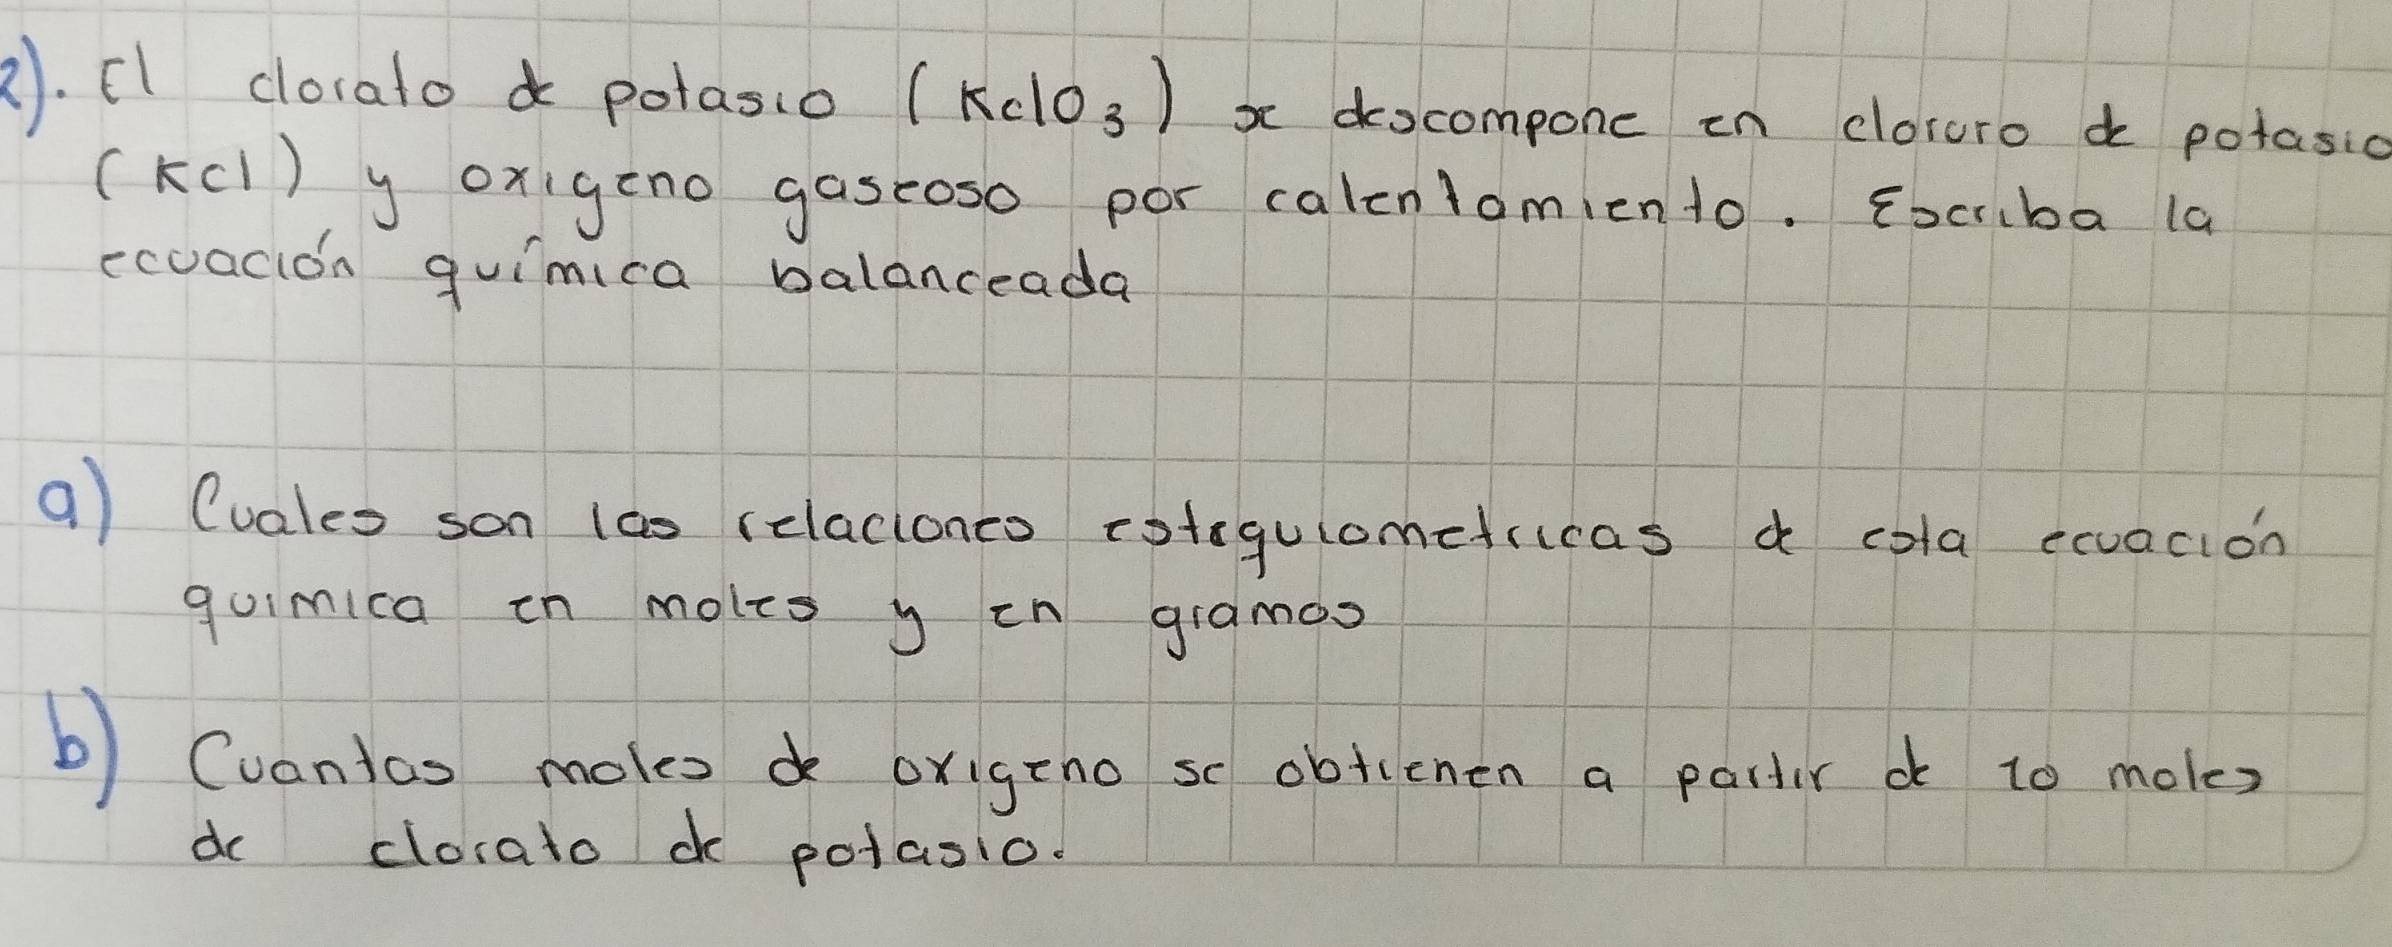 2). El clorato de potasio (KClO₃) se descompone en cloruro de potasio
(KCl) y oxigeno gaseoso por calentamiento. Escriba la
ecuación química balanceada
a) Cuales son las relaciones estequiometricas de esta ecuación
quimica en moles y en gramos
b) Cuantas moles de oxigeno se obtienen a partir de 10 moles
de clorato de potasio.